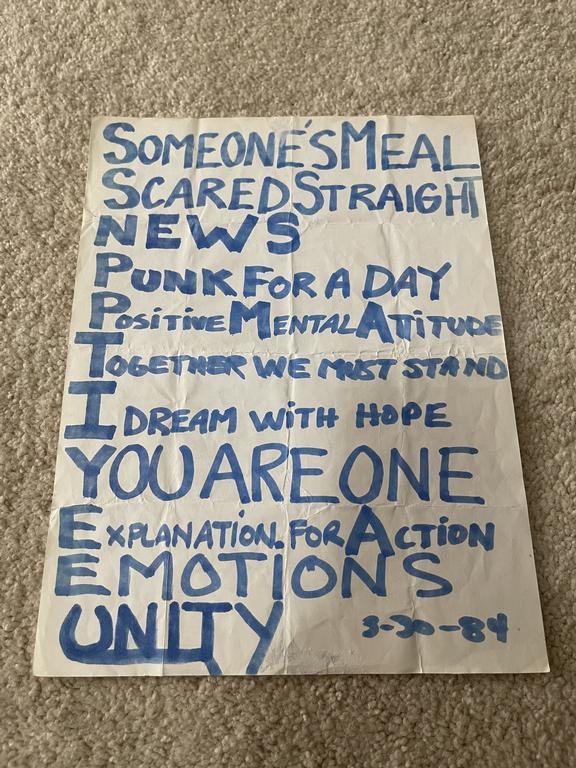 SOMEONE'S MEAL
SCARED STRAIGHT
NEWS
PUNK FOR A DAY
POSITIVE MENTAL ATTITUDE
TOGETHER WE MUST STAND
I DREAM WITH HOPE
YOU ARE ONE
EXPLANATION. FOR ACTION
EMOTIONS
UNITY 3-30-84